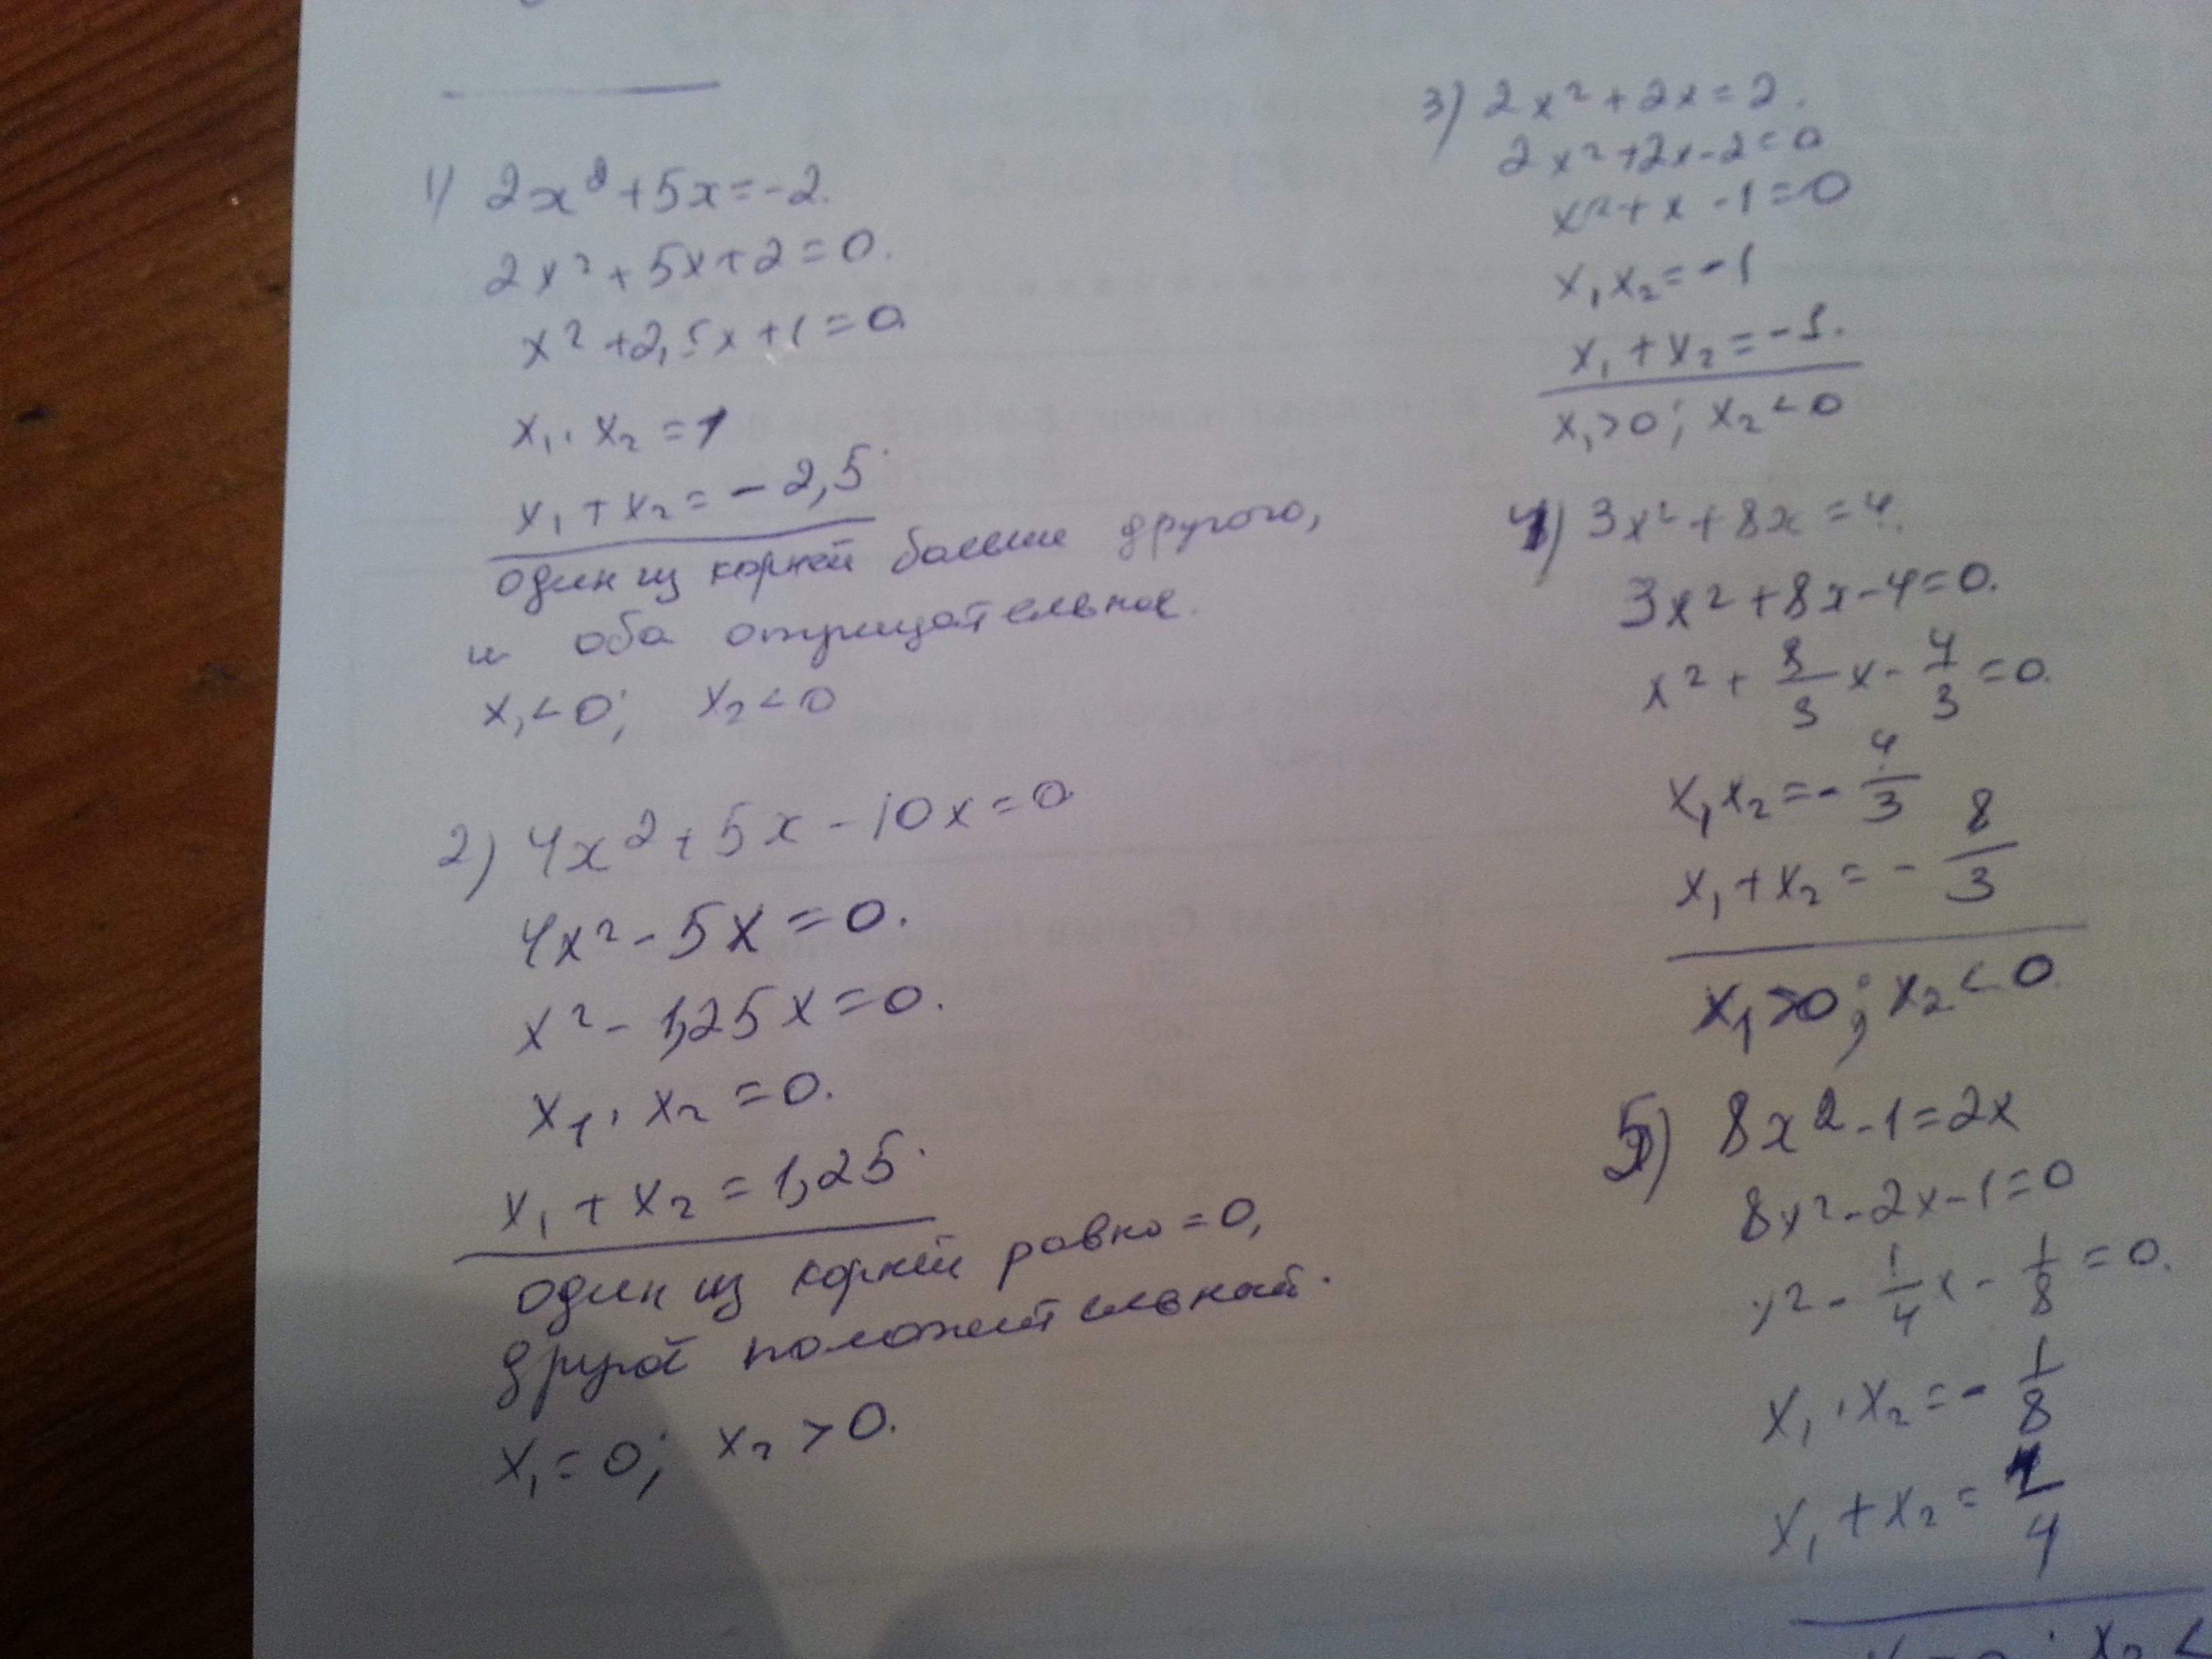 1) 2x²+5x=-2.
2x²+5x+2=0.
x²+2,5x+1=0
x₁·x₂=1
x₁+x₂=-2,5
один из корней больше другого,
и оба отрицательное.
x₁<0; x₂<0
2) 4x²+5x-10x=0
4x²-5x=0.
x²-1,25x=0.
x₁·x₂=0.
x₁+x₂=1,25.
один из корней равно=0,
другой положительный.
x₁=0; x₂>0.
3) 2x²+2x=2.
2x²+2x-2=0
x²+x-1=0
x₁x₂=-1
x₁+x₂=-1.
x₁>0; x₂<0
4) 3x²+8x=4.
3x²+8x-4=0.
x²+8/3x-4/3=0.
x₁x₂=-4/3
x₁+x₂=-8/3
x₁>0; x₂<0
5) 8x²-1=2x
8x²-2x-1=0
x²-1/4x-1/8=0.
x₁·x₂=-1/8
x₁+x₂=1/4
; x₂<